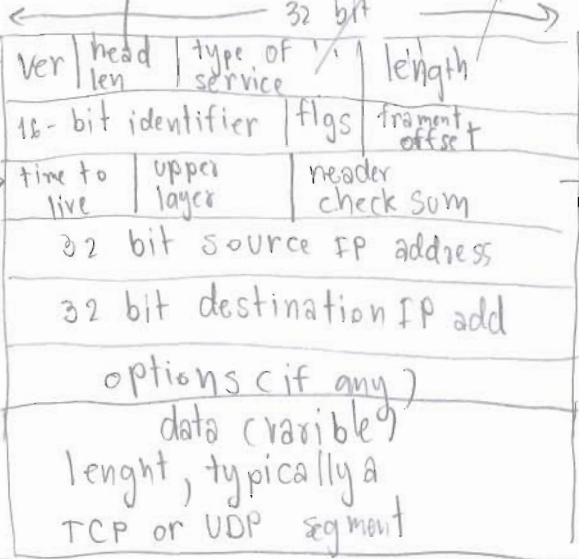 32 bit
ver head len type of service length
16-bit identifier flgs frament offset
time to live upper layer header check sum
32 bit source IP address
32 bit destination IP add
options (if any)
data (varible)
lenght, typically a
TCP or UDP segment